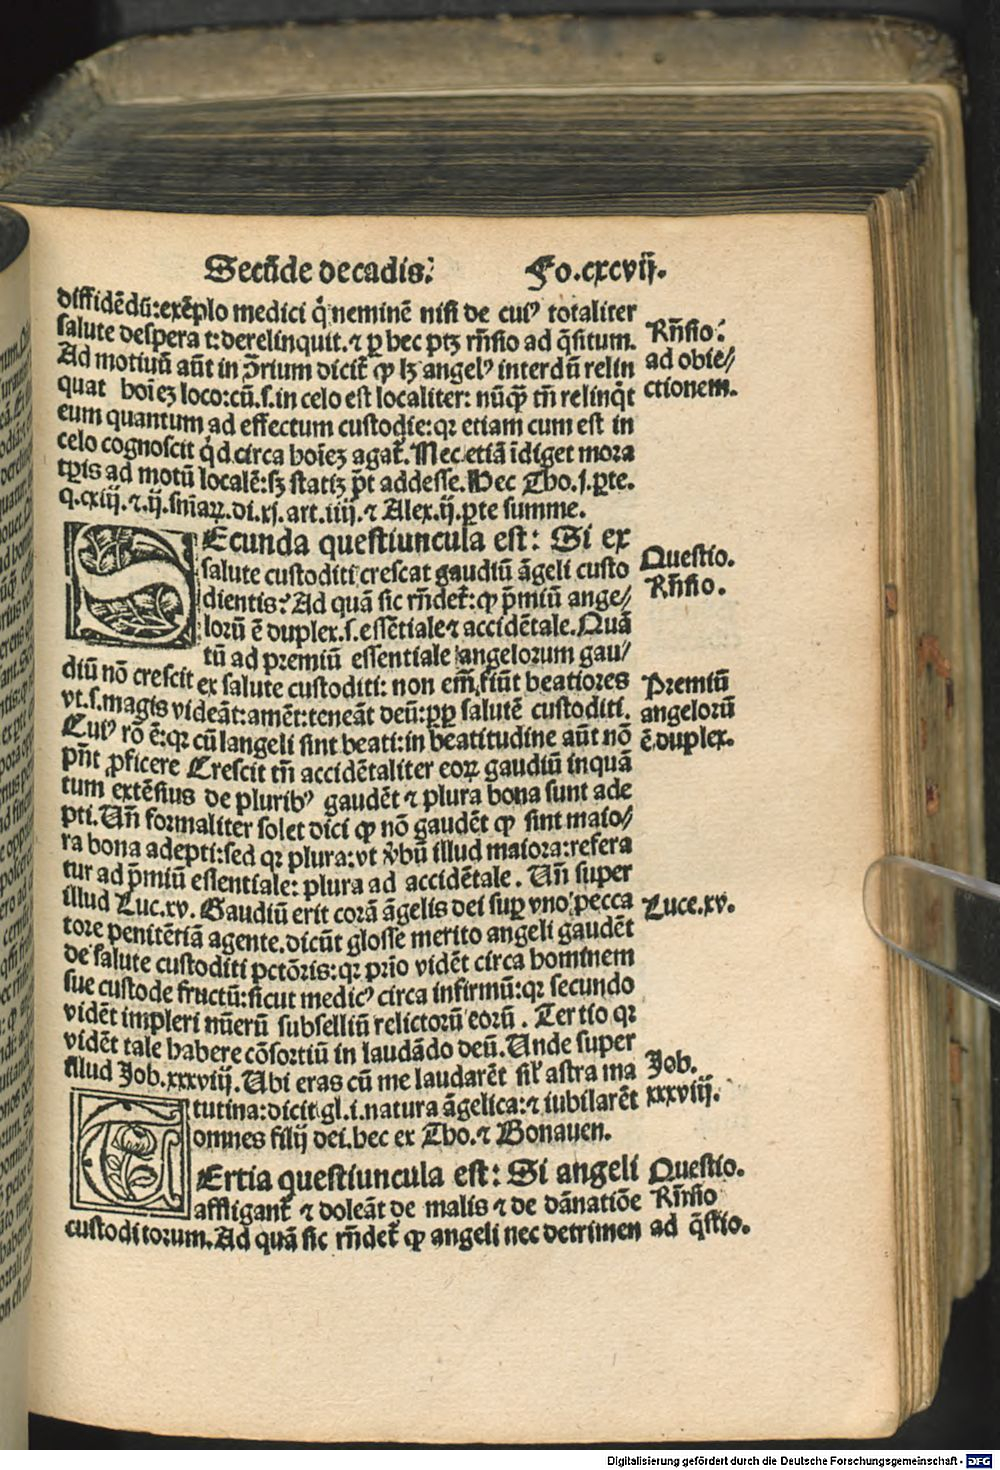 Secūde decadis. Fo.cxcvij.
diffidēdū:exēplo medici q̇ neminē nisi de cuiꝰ totaliter
salute despera t:derelinquit.⁊ ꝑ hec ptꝫ rñsio ad q̄situm.
Rñsio
Ad motiuū aūt in ꝯ̄rium dicit̄ ꝙ lꝫ angelꝰ interdū relin
ad obie/
quat hoīeꝫ loco:cū.s.in celo est localiter: nūq̄ꝫ tn̄ relinq̇t
ctionem.
eum quantum ad effectum custodie:qꝛ etiam cum est in
celo cognoscit q̇d circa hoīeꝫ agat̄. Nec etiā īdiget mora
tꝑis ad motū localē:sꝫ statiꝫ p̄t addesse. Hec Tho.j.ꝑte.
q.cxiij.⁊.ij.sn̄iaꝝ.di.xj.art.iiij.⁊ Alex.ij.ꝑte summe.
SEcunda questiuncula est: Si ex
Questio.
salute custoditi crescat gaudiū āgeli custo
Rñsio.
dientis? Ad quā sic rn̄det̄:ꝙ p̄miū ange/
lorū ē duplex.s.essētiale ⁊ accidētale. Quā
tū ad premiū essentiale angelorum gau/
diū nō crescit ex salute custoditi: non em̄ fiūt beatiores
Premiū
vt.s.magis videāt:amēt:teneāt deū:ꝓpꝑ salutē custoditi.
angelorū
Cuiꝰ rō ē:qꝛ cū angeli sint beati:in beatitudine aūt nō
ē duplex.
pn̄t ꝓficere Crescit tn̄ accidētaliter eoꝝ gaudiū inquā
tum extēsius de pluribꝰ gaudēt ⁊ plura bona sunt ade
pti. Un̄ formaliter solet dici ꝙ nō gaudēt ꝙ sint maio/
ra bona adepti:sed qꝛ plura:vt v̄bū illud maiora:refera
tur ad p̄miū essentiale: plura ad accidētale. Un̄ super
illud Luc.xv. Gaudiū erit corā āgelis dei suꝑ vno pecca
Luce.xv.
tore penitētiā agente.dicūt glosse merito angeli gaudēt
de salute custoditi pctōris:qꝛ prīo vidēt circa hominem
sue custode fructū:sicut medicꝰ circa infirmū:qꝛ secundo
vidēt impleri nūerū subselliū relictorū eorū. Tertio qꝛ
vidēt tale habere cōsortiū in laudādo deū. Unde super
illud Job.xxxviij. Ubi eras cū me laudarēt sil̄ astra ma
Job.
tutina:dicit gl.i.natura āgelica:⁊ iubilarēt
xxxviij.
omnes filij dei.hec ex Tho.⁊ Bonauen.
TErtia questiuncula est: Si angeli
Questio.
affligant̄ ⁊ doleāt de malis ⁊ de dānatiōe
Rñsio
custoditorum. Ad quā sic rn̄det̄ ꝙ angeli nec detrimen
ad q̄stio.
Digitalisierung gefördert durch die Deutsche Forschungsgemeinschaft - DFG